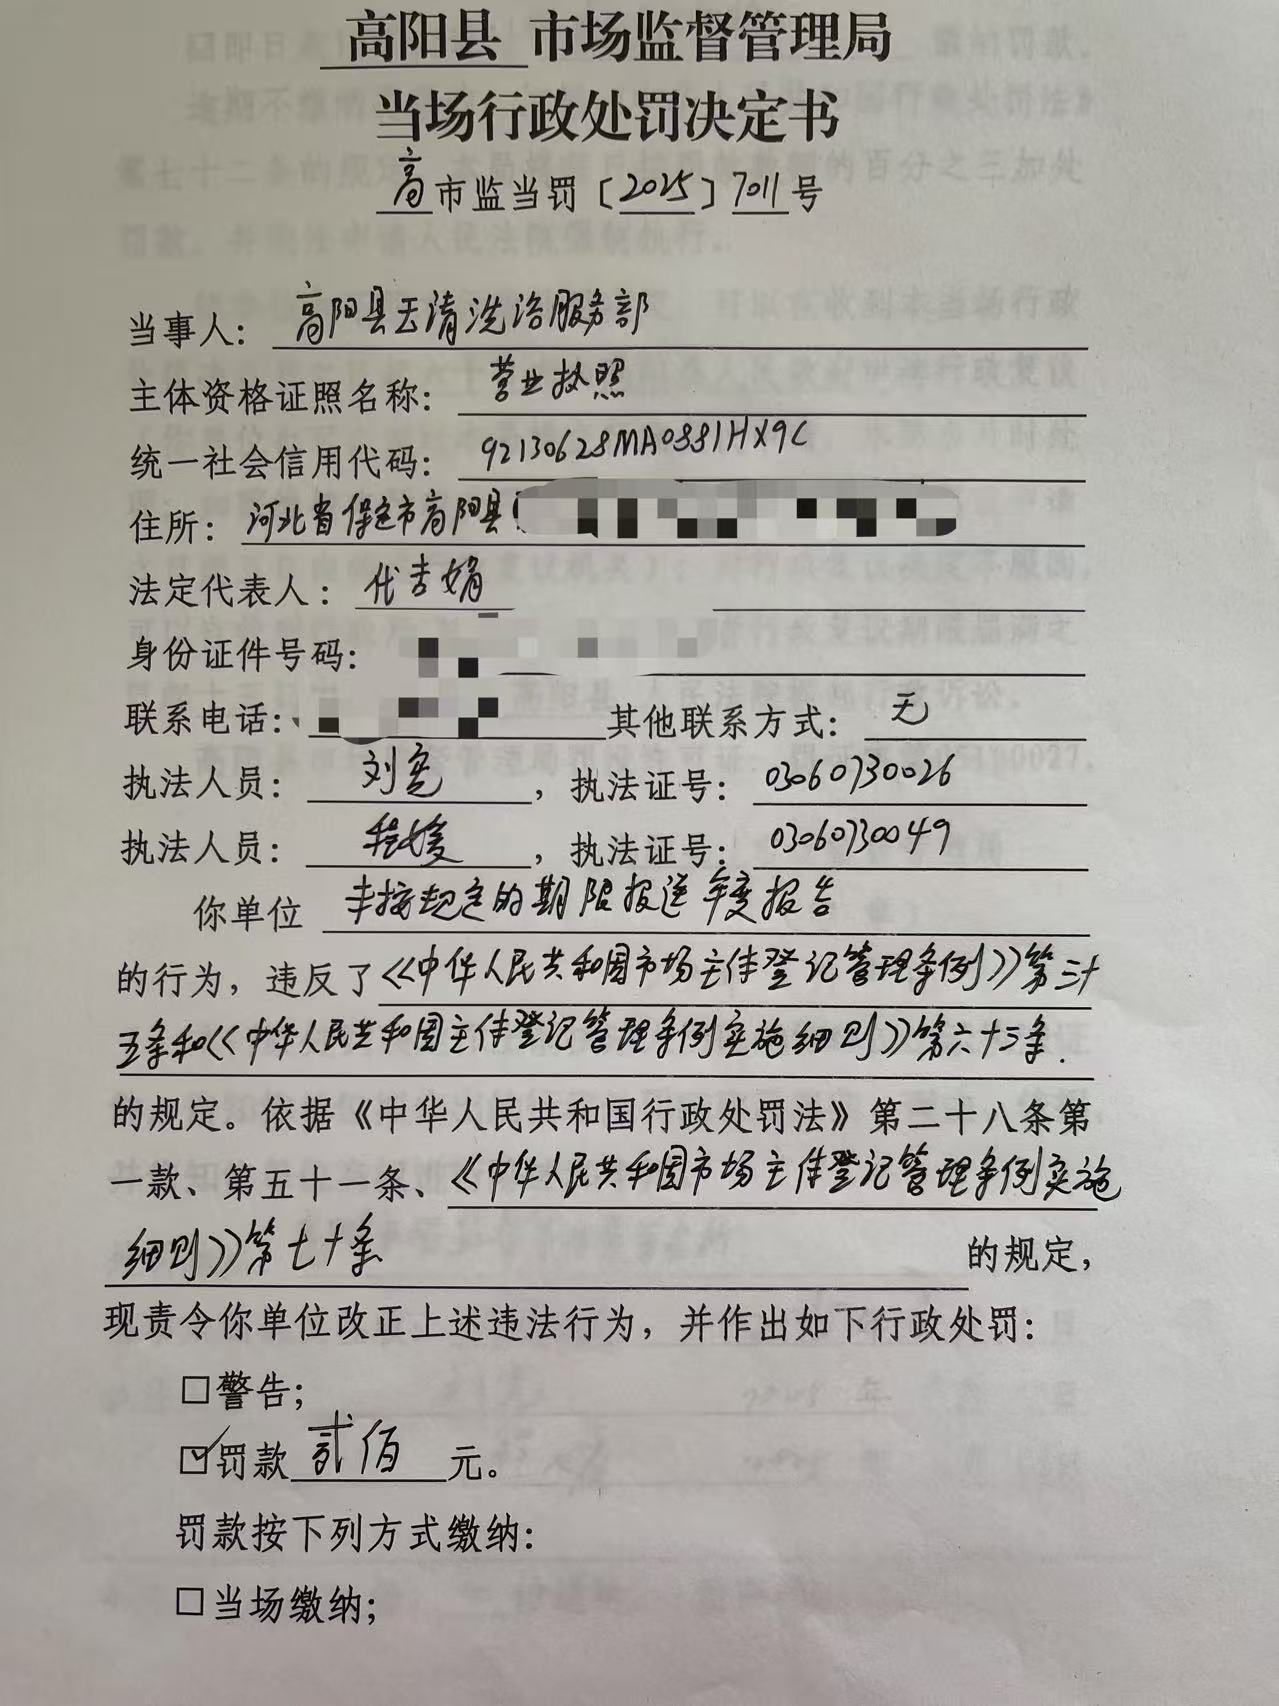 高阳县 市场监督管理局
当场行政处罚决定书
高市监当罚〔2025〕7011号
当事人：高阳县玉清洗浴服务部
主体资格证照名称：营业执照
统一社会信用代码：92130628MA0881HX9C
住所：河北省保定市高阳县
法定代表人：代吉娟
身份证件号码：
联系电话： 其他联系方式：无
执法人员：刘亮，执法证号：03060730026
执法人员：程媛，执法证号：03060730049
你单位 未按规定的期限报送年度报告
的行为，违反了《中华人民共和国市场主体登记管理条例》第三十
五条和《中华人民共和国主体登记管理条例实施细则》第六十三条.
的规定。依据《中华人民共和国行政处罚法》第二十八条第
一款、第五十一条、《中华人民共和国市场主体登记管理条例实施
细则》第七十条 的规定，
现责令你单位改正上述违法行为，并作出如下行政处罚：
□警告；
☑罚款贰佰元。
罚款按下列方式缴纳：
□当场缴纳；